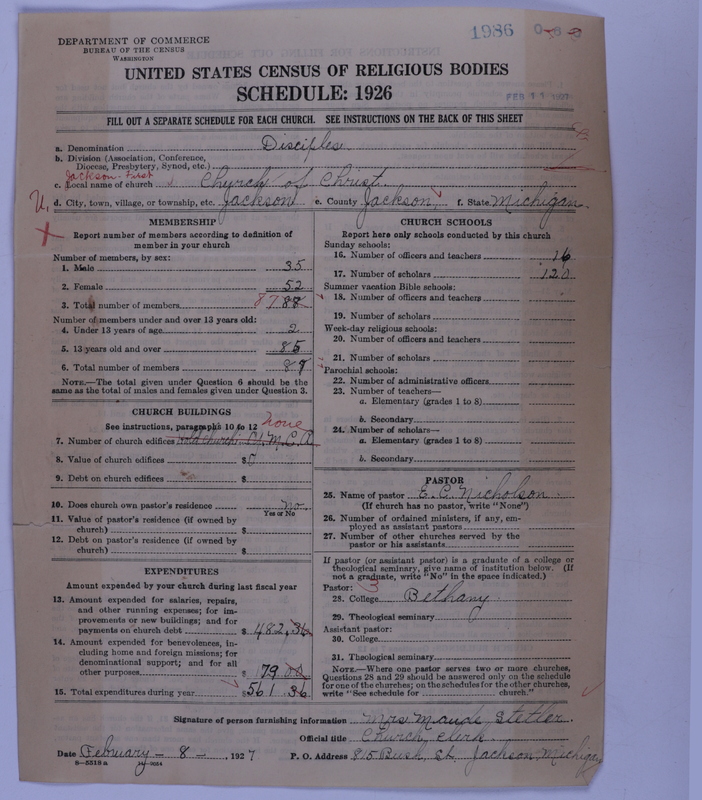 1986
DEPARTMENT OF COMMERCE
BUREAU OF THE CENSUS
WASHINGTON
UNITED STATES CENSUS OF RELIGIOUS BODIES
SCHEDULE: 1926
FEB 11 1927
FILL OUT A SEPARATE SCHEDULE FOR EACH CHURCH. SEE INSTRUCTIONS ON THE BACK OF THIS SHEET
a. Denomination Disciples
b. Division (Association, Conference,
Diocese, Presbytery, Synod, etc.)
Jackson. First
c. Local name of church Church of Christ
d. City, town, village, or township, etc. Jackson e. County Jackson f. State Michigan.
MEMBERSHIP
Report number of members according to definition of
member in your church
Number of members, by sex:
1. Male 35
2. Female 52
3. Total number of members 87 88
Number of members under and over 13 years old:
4. Under 13 years of age 2
5. 13 years old and over 85
6. Total number of members 87
NOTE.—The total given under Question 6 should be the
same as the total of males and females given under Question 3.
CHURCH BUILDINGS
See instructions, paragraphs 10 to 12 none
7. Number of church edifices
8. Value of church edifices $0
9. Debt on church edifices $
10. Does church own pastor's residence No.
Yes or No
11. Value of pastor's residence (if owned by
church) $
12. Debt on pastor's residence (if owned by
church) $
EXPENDITURES
Amount expended by your church during last fiscal year
13. Amount expended for salaries, repairs,
and other running expenses; for im-
provements or new buildings; and for
payments on church debt $ 482.36
14. Amount expended for benevolences, in-
cluding home and foreign missions; for
denominational support; and for all
other purposes $ 79 00
15. Total expenditures during year $561.36
CHURCH SCHOOLS
Report here only schools conducted by this church
Sunday schools:
16. Number of officers and teachers 16
17. Number of scholars 120
Summer vacation Bible schools:
18. Number of officers and teachers
19. Number of scholars
Week-day religious schools:
20. Number of officers and teachers
21. Number of scholars
Parochial schools:
22. Number of administrative officers
23. Number of teachers—
a. Elementary (grades 1 to 8)
b. Secondary
24. Number of scholars—
a. Elementary (grades 1 to 8)
b. Secondary
PASTOR
25. Name of pastor E. C. Nicholson
(If church has no pastor, write "None")
26. Number of ordained ministers, if any, em-
ployed as assistant pastors
27. Number of other churches served by the
pastor or his assistants
If pastor (or assistant pastor) is a graduate of a college or
theological seminary, give name of institution below. (If
not a graduate, write "No" in the space indicated.)
Pastor: 3
28. College Bethany
29. Theological seminary
Assistant pastor:
30. College
31. Theological seminary
NOTE.—Where one pastor serves two or more churches,
Questions 28 and 29 should be answered only on the schedule
for one of the churches; on the schedules for the other churches,
write "See schedule for church."
Signature of person furnishing information Mrs. Maude Stetler
Official title Church clerk
Date February - 8 -, 1927 P. O. Address 815 Bush St. Jackson Michigan
8-5518 a